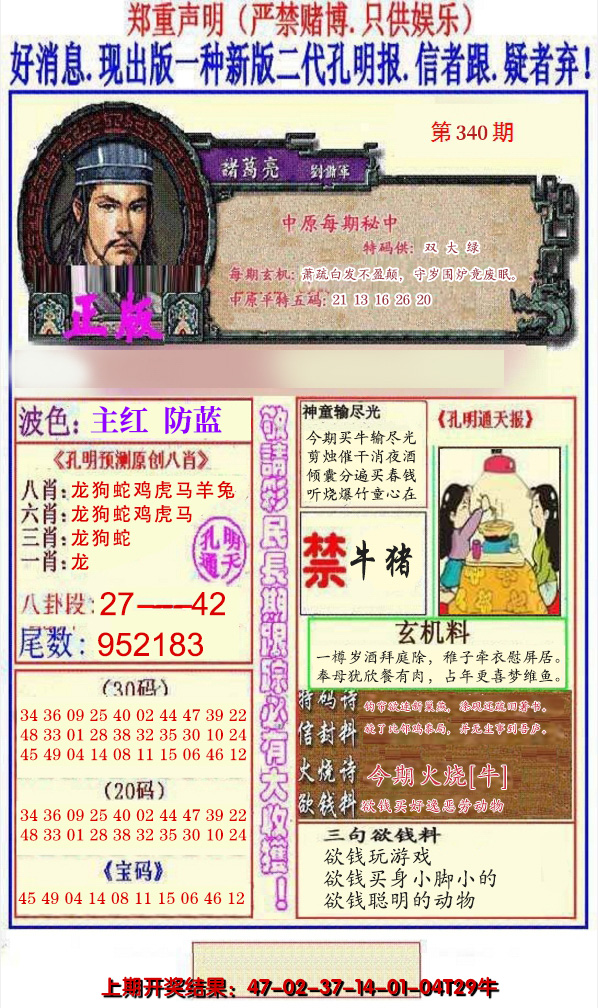 郑重声明（严禁赌博.只供娱乐）
好消息.现出版一种新版二代孔明报.信者跟.疑者弃!
第340期
諸葛亮 劉備軍
正版
中原每期秘中
特码供：双 大 绿
每期玄机：萧疏白发不盈颠，守岁围炉竟废眠。
中原平特五码：21 13 16 26 20
波色：主红 防蓝
《孔明预测原创八肖》
八肖：龙狗蛇鸡虎马羊兔
六肖：龙狗蛇鸡虎马
三肖：龙狗蛇
一肖：龙
孔明
通天
八卦段：27——42
尾数：952183
（30码）
34 36 09 25 40 02 44 47 39 22
48 33 01 28 38 32 35 30 10 24
45 49 04 14 08 11 15 06 46 12
（20码）
34 36 09 25 40 02 44 47 39 22
48 33 01 28 38 32 35 30 10 24
《宝码》
45 49 04 14 08 11 15 06 46 12
敬請彩民長期跟踪必有大收獲！
神童输尽光
今期买牛输尽光
剪烛催干消夜酒
倾囊分遍买春钱
听烧爆竹童心在
《孔明通天报》
禁 牛猪
玄机料
一樽岁酒拜庭除，稚子牵衣慰屏居。
奉母犹欣餐有肉，占年更喜梦维鱼。
特码诗
信封料
火烧诗 今期火烧[牛]
欲钱料 欲钱买好逸恶劳动物
三句欲钱料
欲钱玩游戏
欲钱买身小脚小的
欲钱聪明的动物
上期开奖结果：47-02-37-14-01-04T29牛